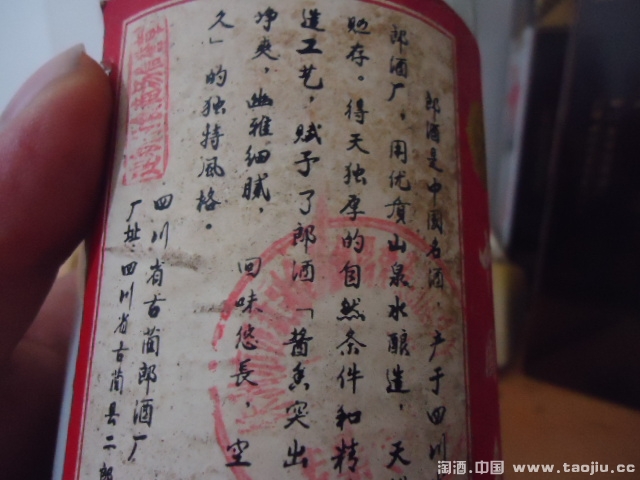 郎酒是中国名酒，产于四川
郎酒厂，用优质山泉水酿造，天
贮存。得天独厚的自然条件和精
造工艺，赋予了郎酒「酱香突出
净爽，幽雅细腻，回味悠長，空
久」的独特風格。
四川省古蔺郎酒厂
厂址：四川省古蔺县二郎
淘酒.中国 www.taojiu.cc